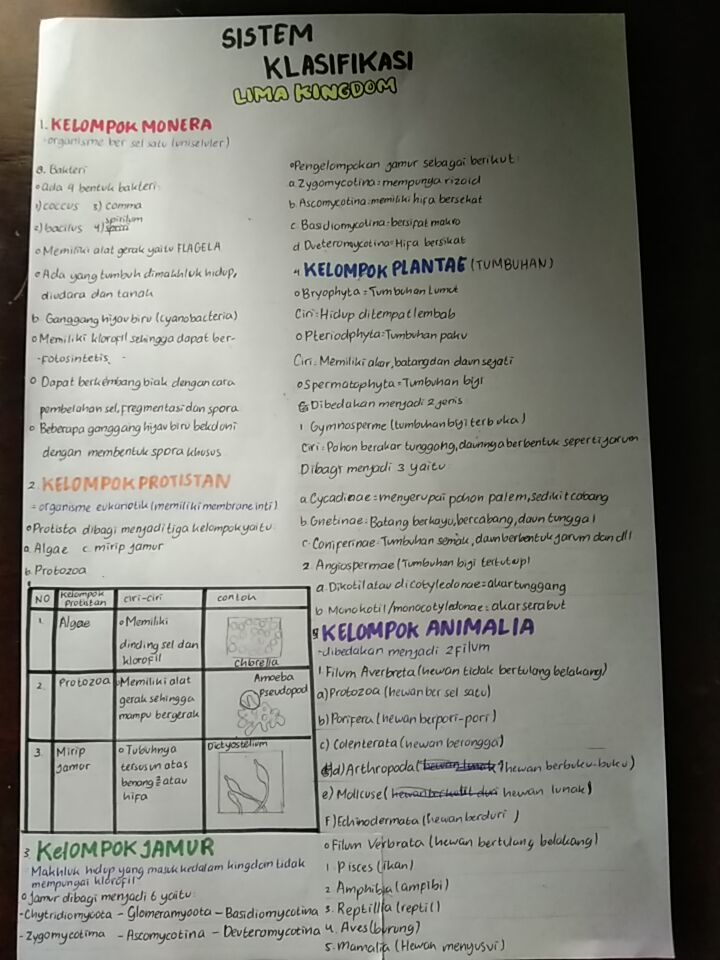 SISTEM
KLASIFIKASI
LIMA KINGDOM
1. KELOMPOK MONERA
-organisme ber sel satu (uniseluler)
a. Bakteri
o Ada 4 bentuk bakteri
1) coccus 3) comma
2) bacilus 4) spirilum
o Memiliki alat gerak yaitu FLAGELA
o Ada yang tumbuh dimakhluk hidup,
diudara dan tanah
b Ganggang hijau biru (cyanobacteria)
o Memiliki klorofil sehingga dapat ber-
-fotosintetis.
o Dapat berkembang biak dengan cara
pembelahan sel, fregmentasi dan spora
o Beberapa ganggang hijau biru
dengan membentuk spora khusus
2. KELOMPOK PROTISTAN
= organisme eukariotik (memiliki membrane inti)
o Protista dibagi menjadi tiga kelompok yaitu
a. Algae c. mirip jamur
b. Protozoa
NO Kelompok Protistan ciri-ciri contoh
1. Algae o Memiliki dinding sel dan klorofil chlorella
2. Protozoa o Memiliki alat gerak sehingga mampu bergerak Amoeba pseudopod
3. Mirip jamur o Tubuhnya tersosun atas benang atau hifa Dictyostelium
3. KELOMPOK JAMUR
Makhluk hidup yang masuk kedalam kingdom tidak
mempungai klorofil
o Jamur dibagi menjadi 6 yaitu:
-Chytridiomycota - Glomeramyoota - Basidiomycotina
-Zygomycotima - Ascomycotina - Deuteromycotina
o Pengelompokan jamur sebagai berikut:
a. Zygomycotina = mempunya rizoid
b. Ascomycotina = memiliki hifa bersekat
c. Basidiomycotina = bersifat makro
d Dueteromycotina = Hifa bersikat
4. KELOMPOK PLANTAE (TUMBUHAN)
o Bryophyta = Tumbuhan Lumut
Ciri : Hidup ditempat lembab
o Pteriodphyta = Tumbuhan paku
Ciri : Memiliki akar, batang dan daun sejati
o Spermatophyta = Tumbuhan biji
Dibedakan menjadi 2 jenis
1 Gymnosperme (tumbuhan biji terbuka)
Ciri : Pohon berakar tunggang, daunnya berbentuk seperti jarum
Dibagi menjadi 3 yaitu
a. Cycadinae = menyerupai pohon palem, sedikit cabang
b. Gnetinae : Batang berkayu, bercabang, daun tunggal
c. Coniferinae : Tumbuhan semak, daun berbentuk jarum dan dll
2. Angiospermae (Tumbuhan biji tertutup)
a. Dikotil atau dicotyledonae = akar tunggang
b Monokotil/monocotyledonae = akar serabut
5 KELOMPOK ANIMALIA
-dibedakan menjadi 2 filum
1. Filum Averbreta (hewan tidak bertulang belakang)
a) Protozoa (hewan ber sel satu)
b) Porifera (hewan berpori-pori)
c) Colenterata (hewan berongga)
d) Arthropoda (hewan lunak) (hewan berbuku-buku)
e) Mollcuse (hewan berkulit duri hewan lunak)
F) Echinodermata (hewan berduri)
o Filum Verbrata (hewan bertulang belakang)
1. Pisces (ikan)
2 Amphibia (ampibi)
3. Reptillia (reptil)
4. Aves (burung)
5. Mamalia (Hewan menyusui)